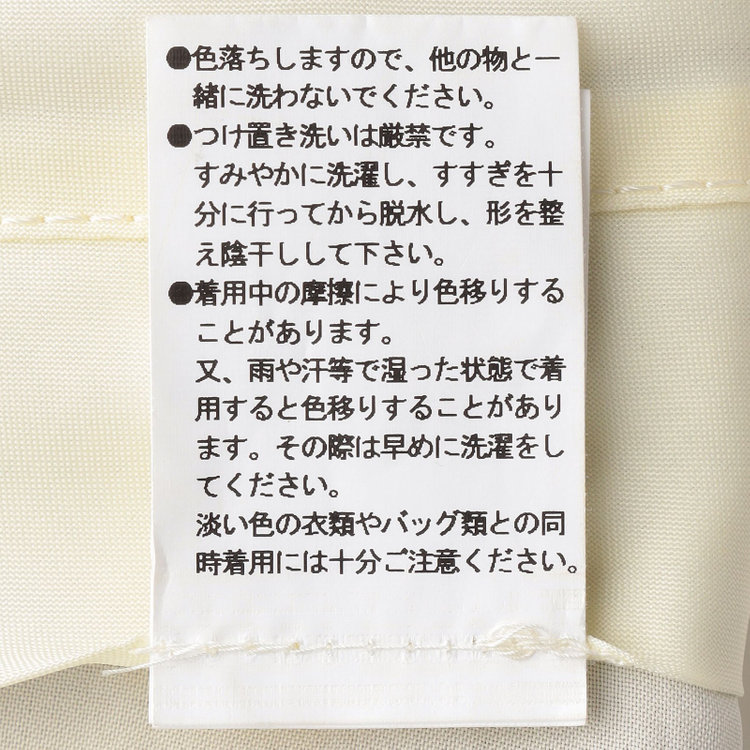 ●色落ちしますので、他の物と一
緒に洗わないでください。
●つけ置き洗いは厳禁です。
すみやかに洗濯し、すすぎを十
分に行ってから脱水し、形を整
え陰干しして下さい。
●着用中の摩擦により色移りする
ことがあります。
又、雨や汗等で湿った状態で着
用すると色移りすることがあり
ます。その際は早めに洗濯をし
てください。
淡い色の衣類やバッグ類との同
時着用には十分ご注意ください。